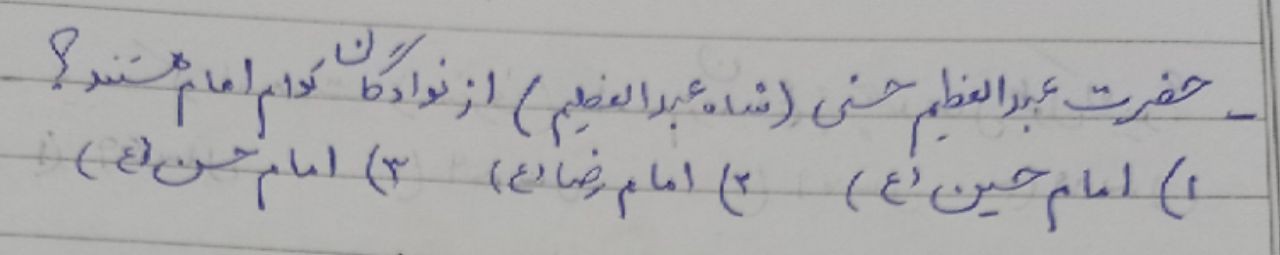 ـ حضرت عبدالعظیم حسنی (شاه عبدالعظیم) از نوادگان کدام امام هستند؟
۱) امام حسین (ع) ۲) امام رضا (ع) ۳) امام حسن (ع)